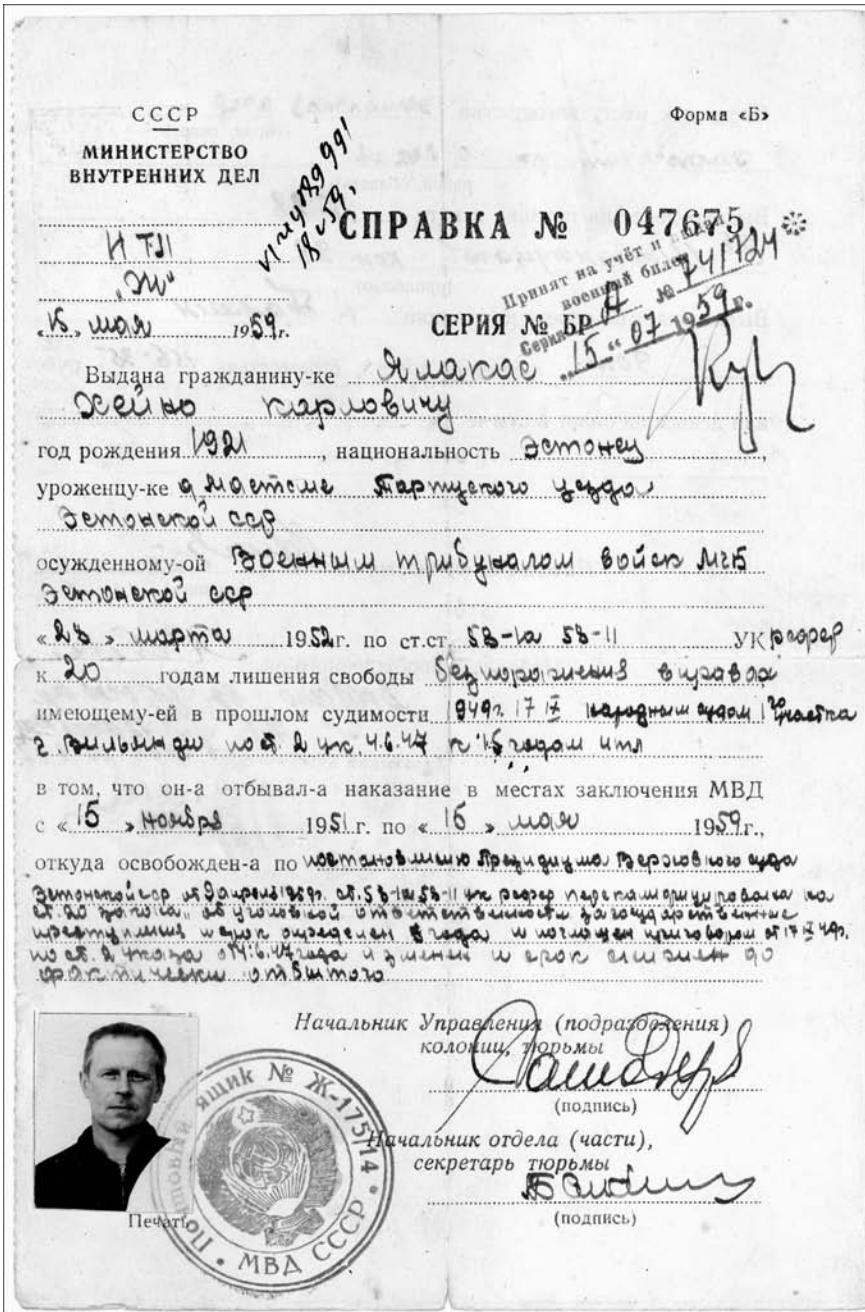 СССР
Форма «Б»
МИНИСТЕРСТВО
ВНУТРЕННИХ ДЕЛ
18/V 59.
СПРАВКА № 047675 *
ИТЛ
„Ж“
Принят на учёт и
военный билет
Серия № 741724
„15“ 07 1959 г.
мая 1959г.
СЕРИЯ № БР
Выдана гражданину-ке Ялакас
Хейно Карловичу
год рождения 1921, национальность Эстонец,
уроженцу-ке Тартуского уезда
Эстонской сср
осужденному-ой Военным трибуналом войск МГБ
Эстонской сср
«28» марта 1952г. по ст.ст. 58-1а 58-11 УК рсфср
к 20 годам лишения свободы без поражения в правах
имеющему-ей в прошлом судимости 1949г. 17 IX народным судом 1го участка
г. Вильянди по ст. 2 ук. 4.6.47 к 15 годам итл
в том, что он-а отбывал-а наказание в местах заключения МВД
с «15» ноября 1951 г. по «16» мая 1959г.,
откуда освобожден-а по постановлению Президиума Верховного суда
Эстонской сср от 9 апреля 1959г. ст. 58-1а 58-11 ук рсфср переквалифицирована на
ст. 20 закона „об уголовной ответственности за государственные
преступления и срок определен года и поглощен приговором от 17 IX 49г.
по ст. 2 указа от 4.6.47 года изменен и срок снижен до
фактически отбытого
Начальник Управления (подразделения)
колонии, тюрьмы
(подпись)
Начальник отдела (части),
секретарь тюрьмы
(подпись)
Печать
Почтовый ящик № Ж-175/14 • МВД СССР •